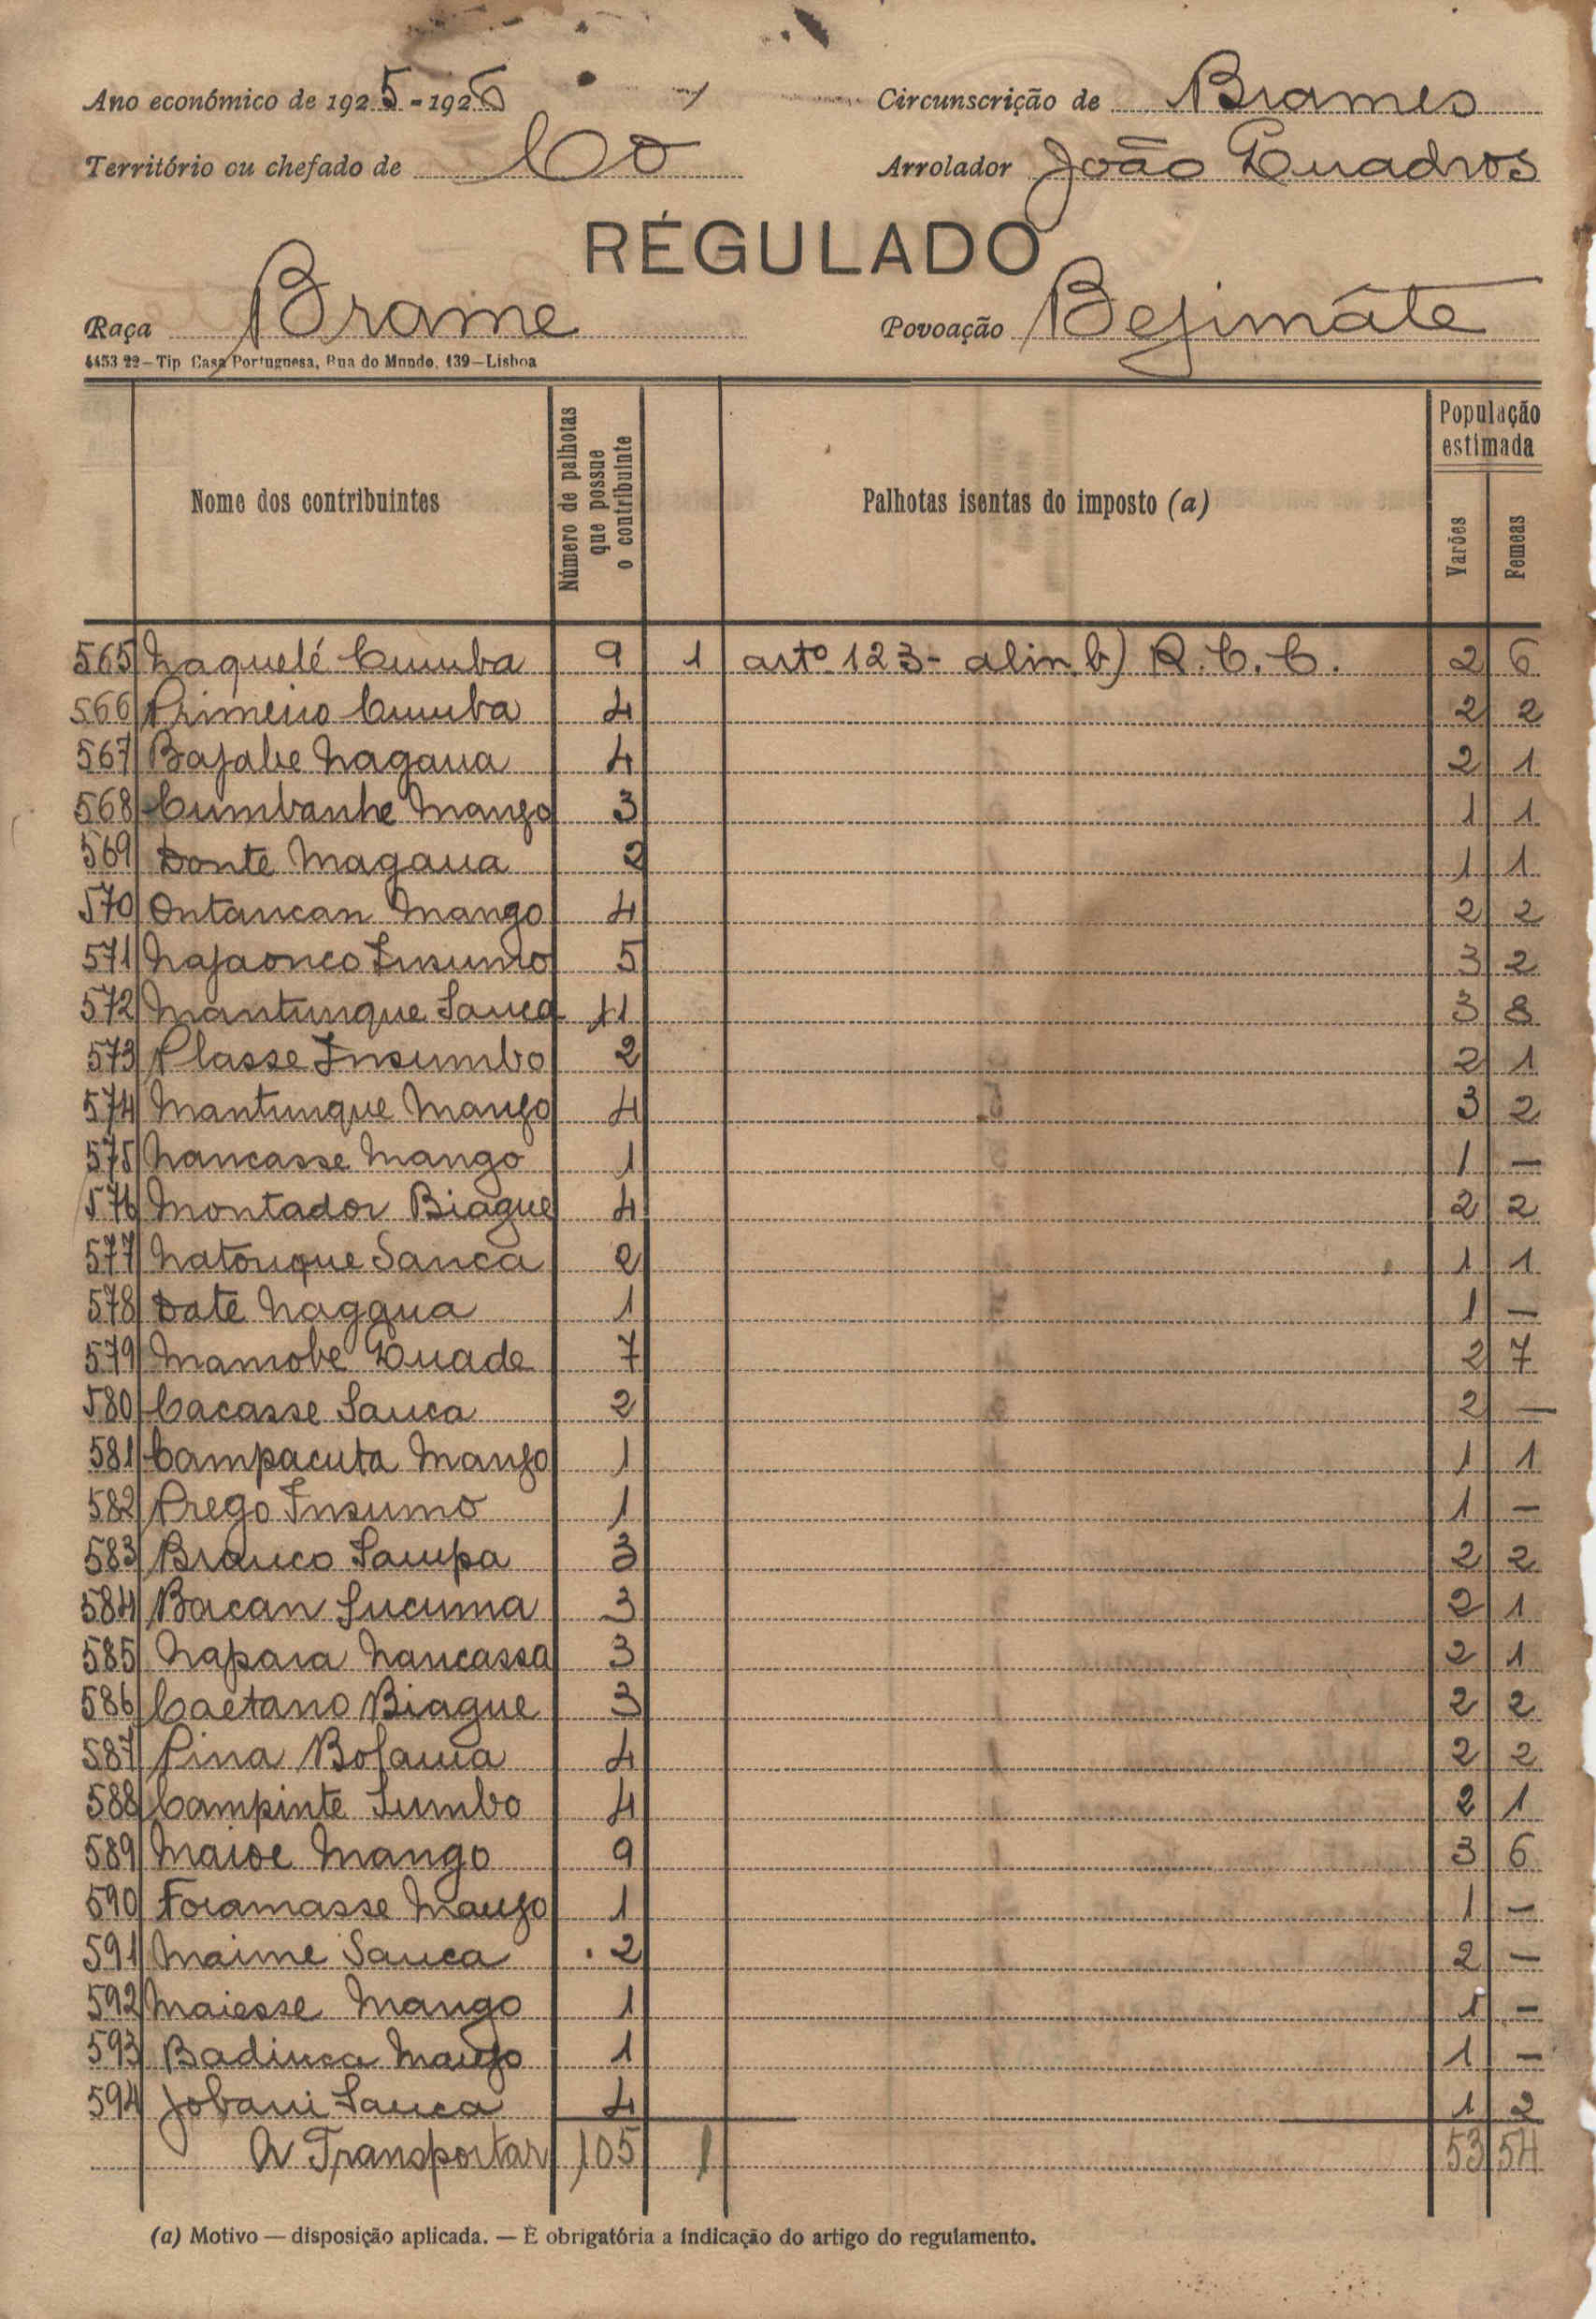 Ano económico de 1925-1926 Circunscrição de Brames
Território ou chefado de Co Arrolador João Quadros
RÉGULADO
Raça Brame Povoação Bejimáte
4453 22—Tip Casa Portuguesa, Rua do Mundo, 139—Lisboa
Nome dos contribuintes Número de palhotas que possue o contribuinte Palhotas isentas do imposto (a) População estimada Varões Femeas
565 Naquelé Cumba 9 1 artº 123- alin. b) R. C. C. 2 6
566 Primeiro Cumba 4 2 2
567 Bajabe Nagaua 4 2 1
568 Cumbanhe Mango 3 1 1
569 Donte Magaua 2 1 1
570 Ontancan Mango 4 2 2
571 Najaonco Insumo 5 3 2
572 Mantunque Sanca 11 3 8
573 Plasse Insumbo 2 2 1
574 Mantunque Mango 4 3 2
575 Nancasse Mango 1 1 —
576 Montador Biague 4 2 2
577 Natonque Sanca 2 1 1
578 Date Nagaua 1 1 —
579 Mamobe Quade 7 2 7
580 Cacasse Sanca 2 2 —
581 Campacuta Mango 1 1 1
582 Prego Insumo 1 1 —
583 Branco Sampa 3 2 2
584 Bacan Sucuma 3 2 1
585 Napara Nancassa 3 2 1
586 Caetano Biague 3 2 2
587 Pina Bolama 4 2 2
588 Campinte Sumbo 4 2 1
589 Maioe Mango 9 3 6
590 Foramasse Mango 1 1 —
591 Maime Sanca 2 2 —
592 Maiesse Mango 1 1 —
593 Badinca Mango 1 1 —
594 Jobani Sanca 4 1 2
A Transportar 105 1 53 54
(a) Motivo — disposição aplicada. — É obrigatória a indicação do artigo do regulamento.